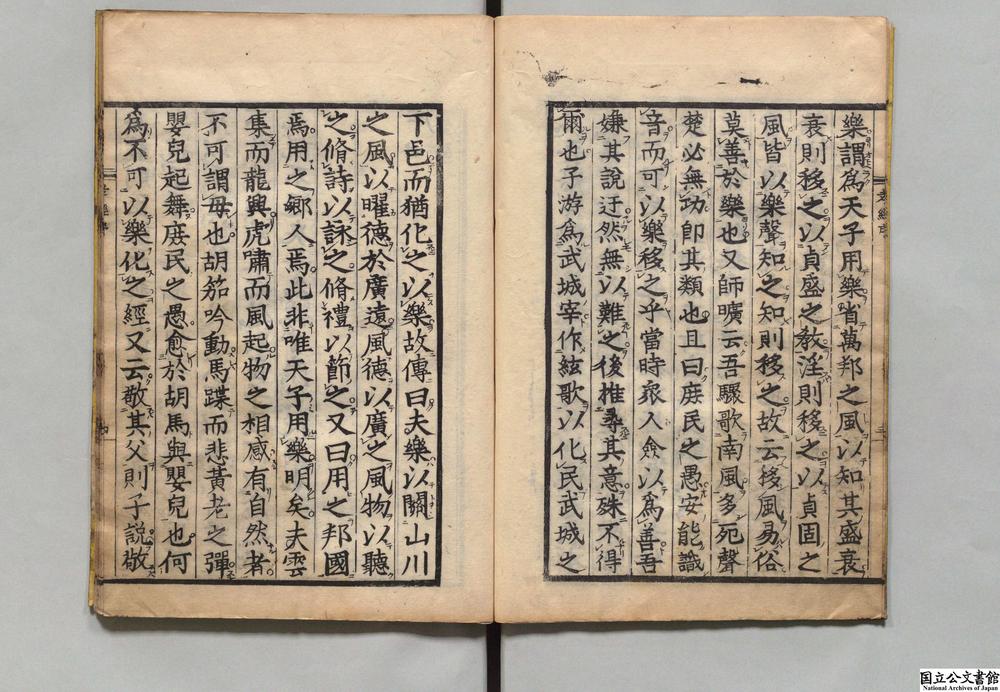 樂謂爲天子用樂省萬邦之風以知其盛衰
衰則移之以貞盛之敎淫則移之以貞固之
風皆以樂聲知之知則移之故云移風易俗
莫善於樂也又師曠云吾驟歌南風多死聲
楚必無功卽其類也且曰庶民之愚安能識
音而可以樂移之乎當時衆人僉以爲善吾
嫌其說迂然無以難之後推尋其意殊不得
爾也子游爲武城宰作絃歌以化民武城之
下邑而猶化之以樂故傳曰夫樂以關山川
之風以曜德於廣遠風德以廣之風物以聽
之脩詩以詠之脩禮以節之又曰用之邦國
焉用之鄕人焉此非唯天子用樂明矣夫雲
集而龍興虎嘯而風起物之相感有自然者
不可謂毋也胡笳吟動馬蹀而悲黃老之彈
嬰兒起舞庶民之愚愈於胡馬與嬰兒也何
爲不可以樂化之經又云敬其父則子說敬
国立公文書館
National Archives of Japan